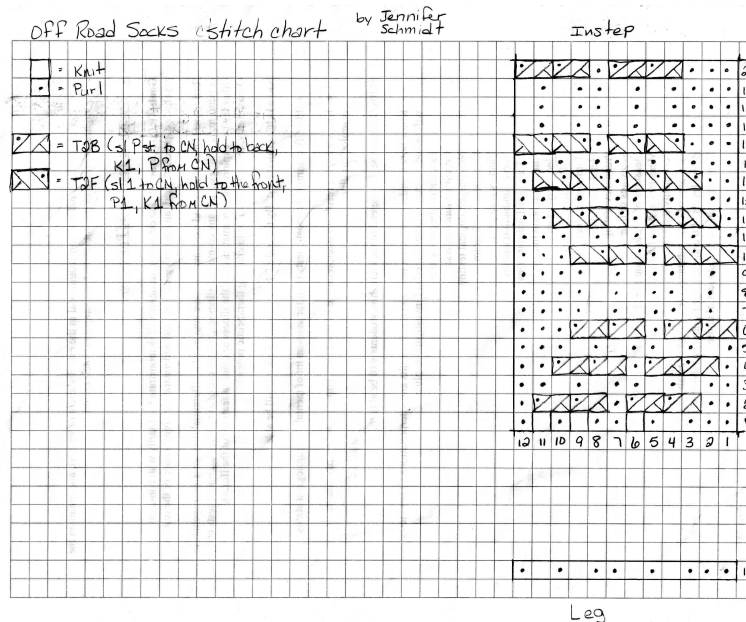 Off Road Socks stitch chart
by Jennifer
Schmidt
Instep
= Knit
= Purl
= T2B (sl P st. to CN, hold to back,
K1, P from CN)
= T2F (sl 1 to CN, hold to the front,
P1, K1 from CN)
12 11 10 9 8 7 6 5 4 3 2 1
Leg